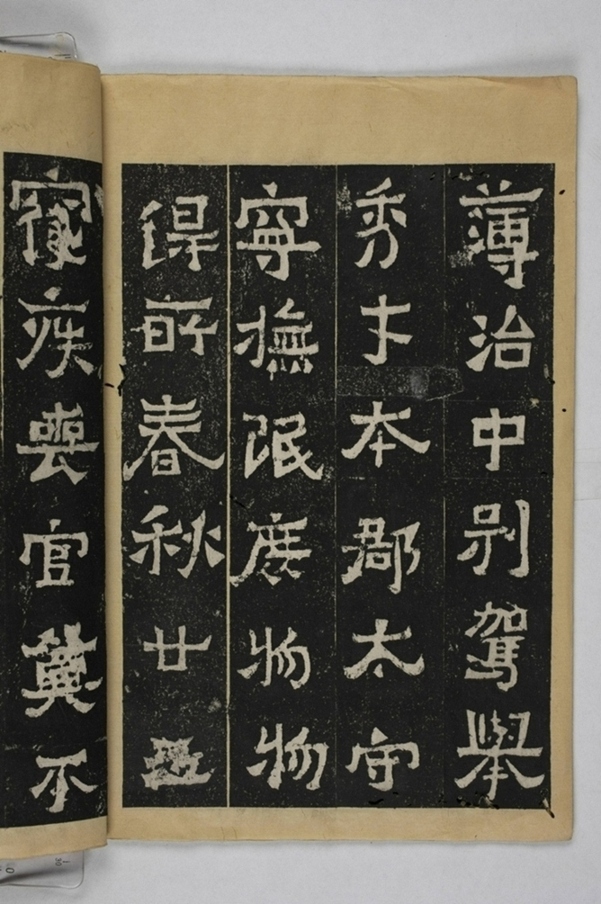 薄治中別駕舉
秀才本郡太守
寧撫氓庶物物
得所春秋廿
寢疾喪官莫不